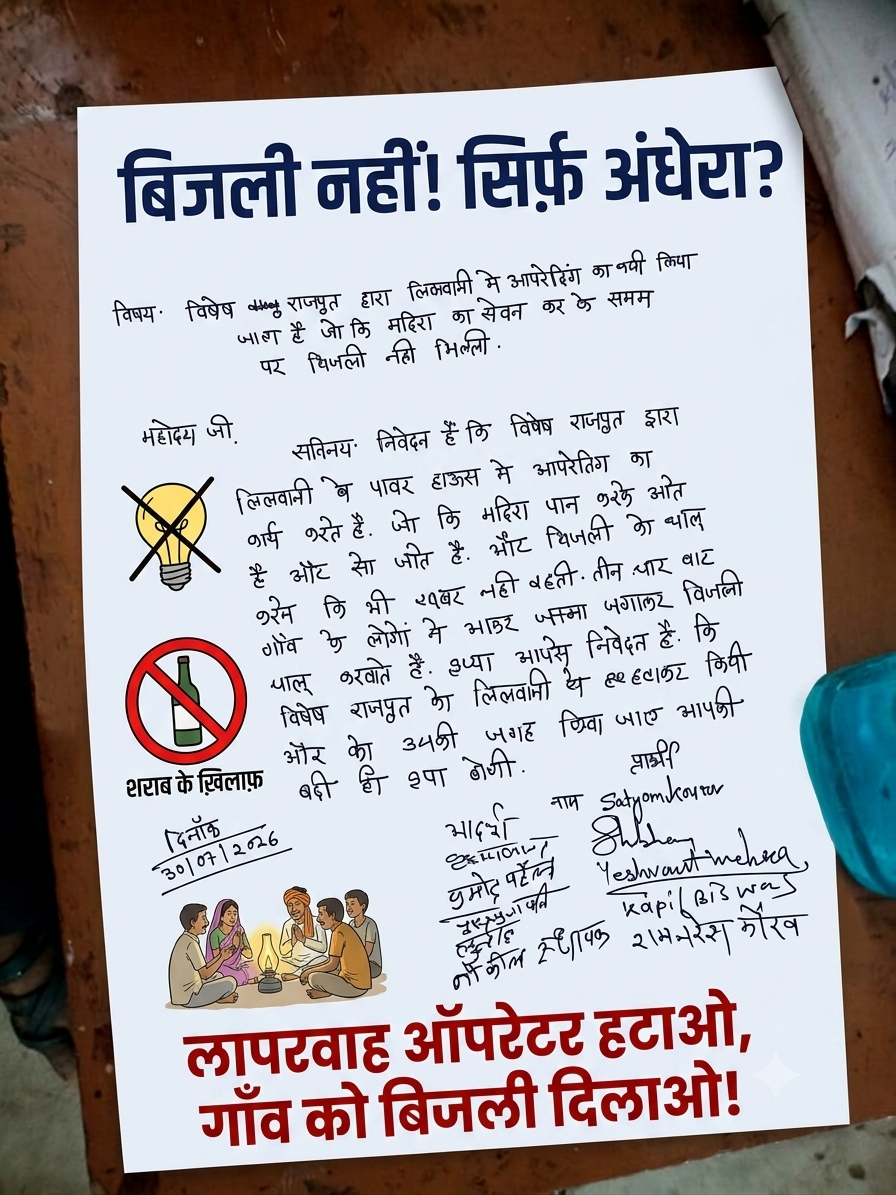 बिजली नहीं! सिर्फ़ अंधेरा?
विषय· विषेष राजपूत द्वारा लिलवानी मे आपरेटिंग का कार्य किया
जाता है जो कि मदिरा का सेवन कर के समय
पर बिजली नही मिलती.
महोदय जी.
सविनय· निवेदन हैं कि विषेष राजपूत द्वारा
लिलवानी के पावर हाऊस मे आपरेटिग का
कार्य करते है. जो कि मदिरा पान करके आते
है और सो जाते है. और बिजली को चालू
करने कि भी खबर नही रहती. तीन चार बार
गाँव के लोगों ने जाकर जगाकर बिजली
चालू करवाते है. कृप्या आपसे निवेदन है. कि
विषेष राजपूत को लिलवानी से हटाकर किसी
और को उसकी जगह किया जाए आपकी
बडी ही कृपा होगी.
प्रार्थी
नाम Satyam Kourav
आदर्श Shubham
प्रमोद पटेल Yeshwant mehra
Kapil Biswas
रामनरेस कौरव
शराब के ख़िलाफ़
दिनाँक
30/07/2026
लापरवाह ऑपरेटर हटाओ,
गाँव को बिजली दिलाओ!